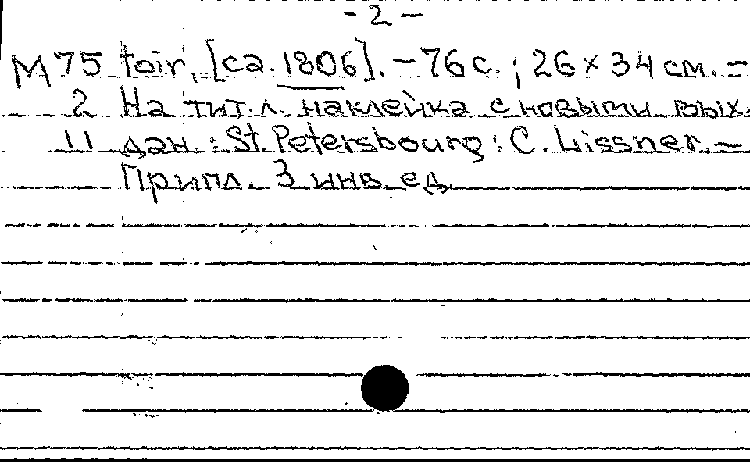 - 2 -
М 75 toir, [ca. 1806]. - 76 с. ; 26 × 34 см. -
2 На тит. л. наклейка с новыми вых.
11 дан.: St. Petersbourg : C. Lissner. -
Припл. 3 инв. ед.